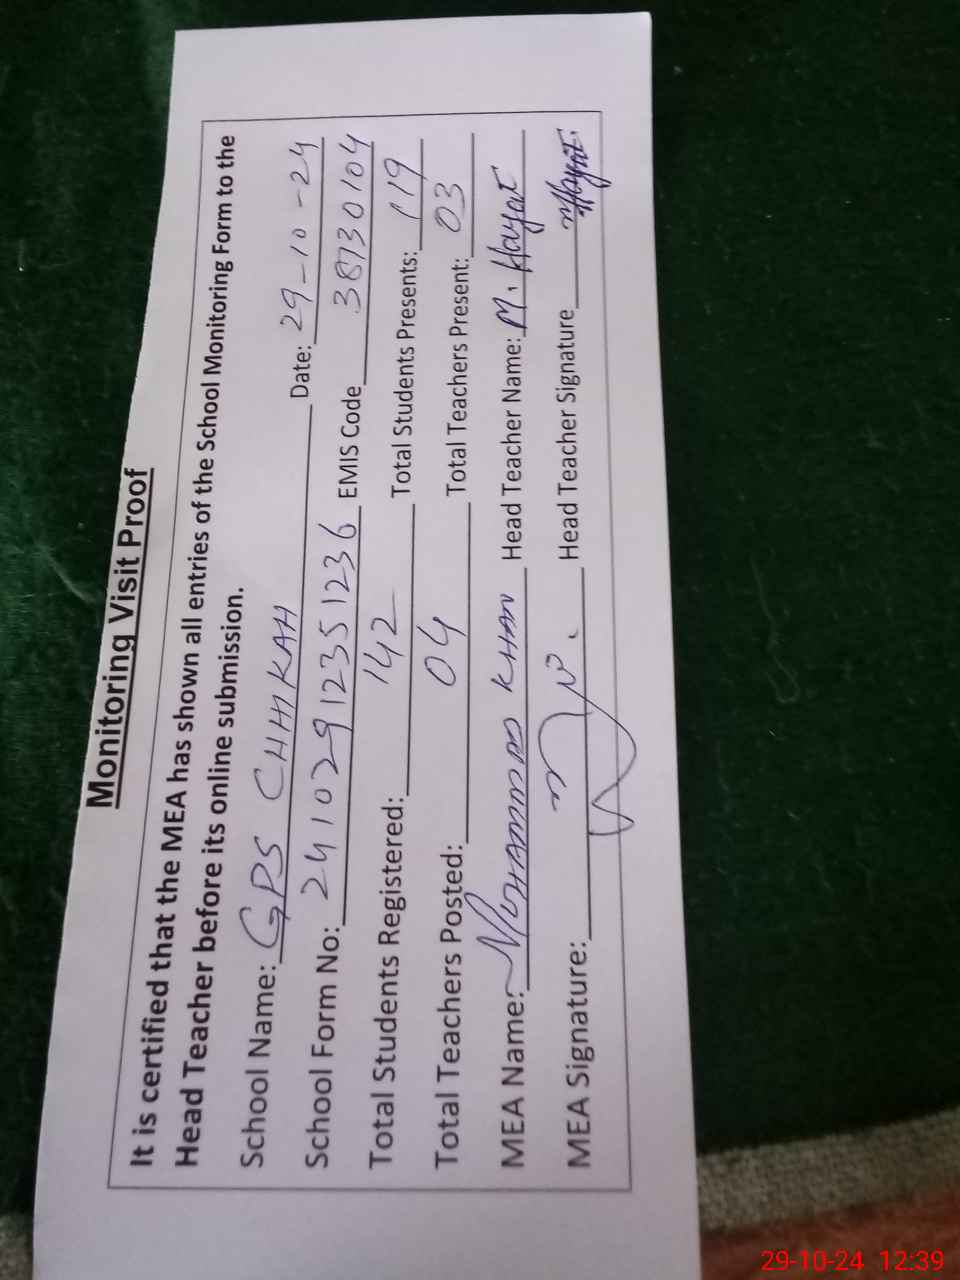 Monitoring Visit Proof
It is certified that the MEA has shown all entries of the School Monitoring Form to the
Head Teacher before its online submission.
School Name: GPS CHHIKAH Date: 29-10-24
School Form No: 24102912351236 EMIS Code 38730104
Total Students Registered: 142 Total Students Presents: 119
Total Teachers Posted: 04 Total Teachers Present: 03
MEA Name: MUHAMMAD KHAN Head Teacher Name: M. Hayat
MEA Signature: Head Teacher Signature MHayat
29-10-24 12:39